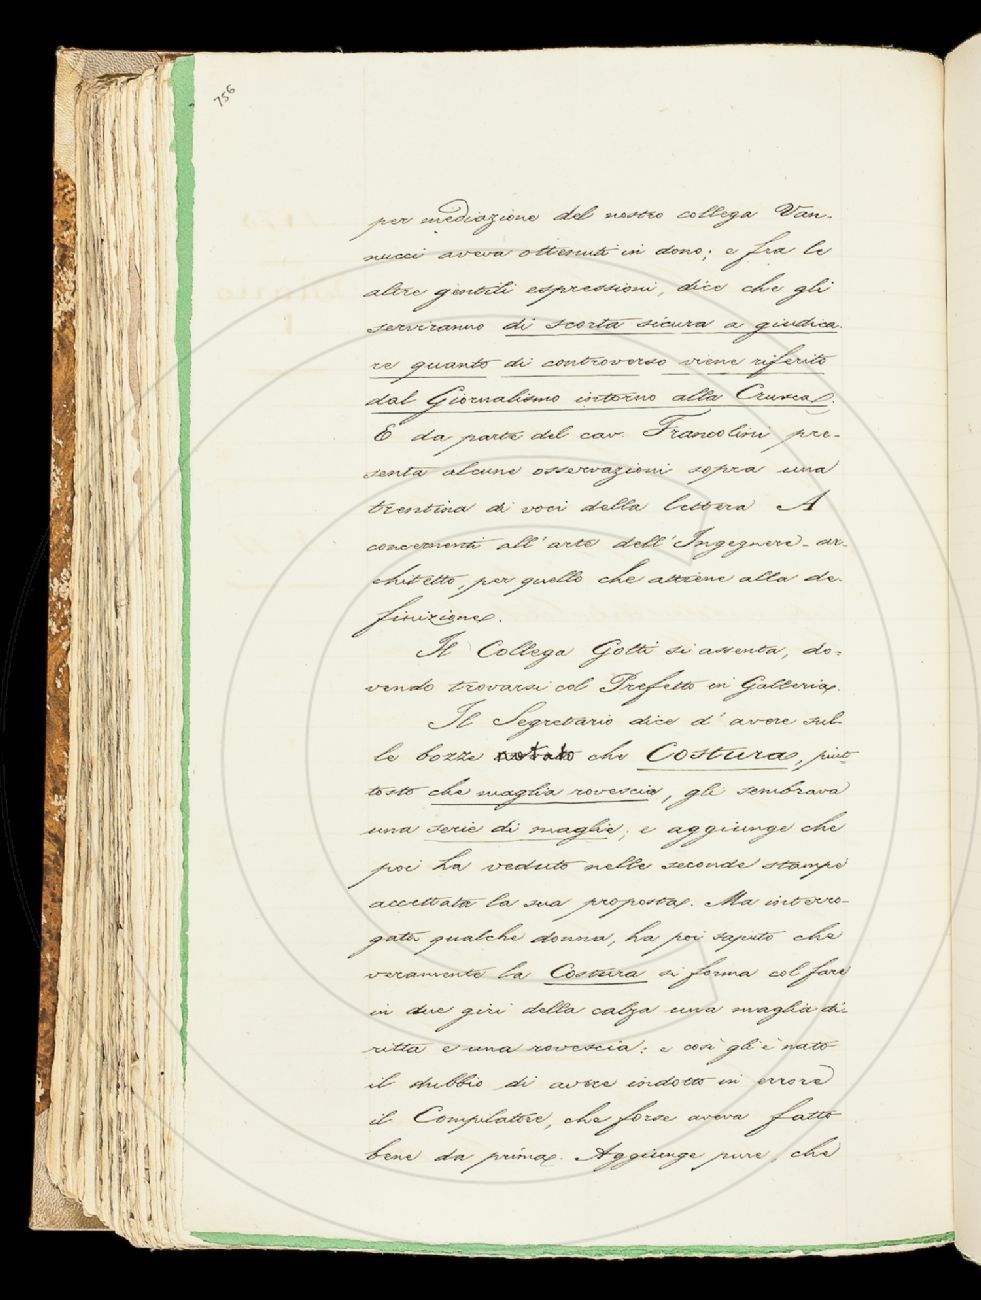 756
per mediazione del nostro collega Van-
nucci aveva ottenuti in dono; e fra le
altre gentili espressioni, dice che gli
serviranno di scorta sicura a giudica-
re quanto di controverso viene riferito
dal Giornalismo intorno alla Crusca.
E da parte del cav. Francolini pre-
senta alcune osservazioni sopra una
trentina di voci della lettera A
concernenti all'arte dell'Ingegnere-ar-
chitetto, per quello che attiene alla de-
finizione.
Il Collega Gotti si assenta, do-
vendo trovarsi col Prefetto in Galleria.
Il Segretario dice d'avere sul-
le bozze notato che Costura, piut-
tosto che maglia rovescia, gli sembrava
una serie di maglie; e aggiunge che
poi ha veduto nelle seconde stampe
accettata la sua proposta. Ma interro-
gata qualche donna, ha poi saputo che
veramente la Costura si forma col fare
in due giri della calza una maglia di-
ritta e una rovescia: e così gli è nato
il dubbio di avere indotto in errore
il Compilatore, che forse aveva fatto
bene da prima. Aggiunge pure, che